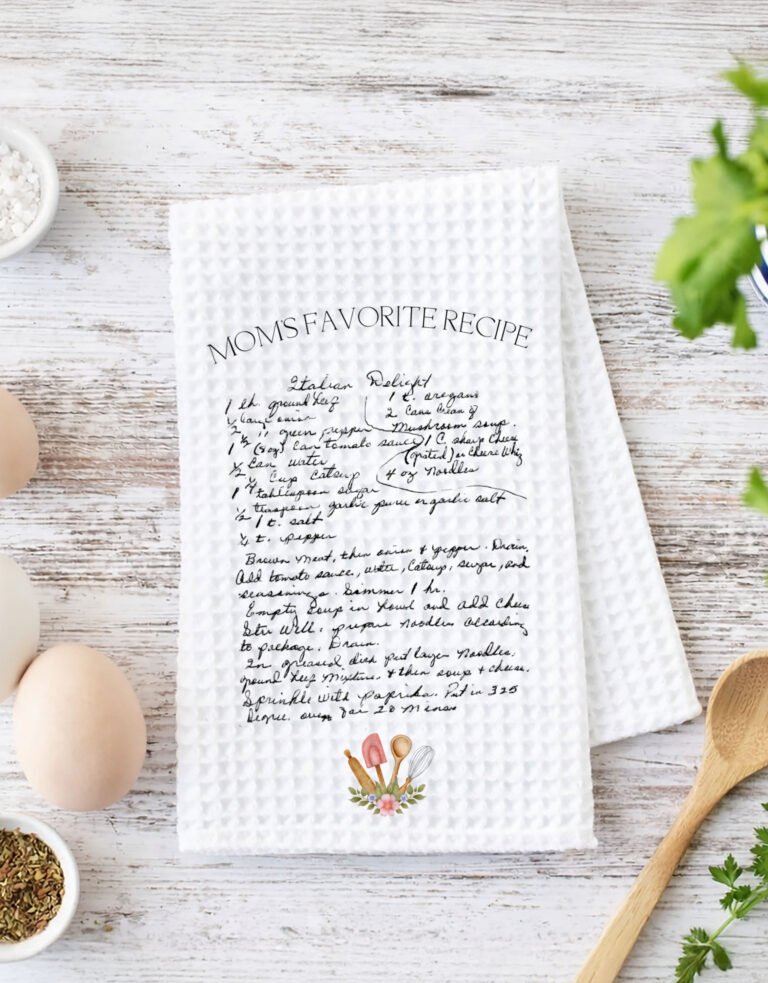 MOM'S FAVORITE RECIPE
Italian Delight
1 lb. ground beef
½ large onion
½ " green pepper
1 (8oz) can tomato sauce
½ can water
¼ cup catsup
1 tablespoon sugar
½ teaspoon garlic pure or garlic salt
1 t. salt
¼ t. pepper
1 t. oregano
2 cans cream of
mushroom soup.
1 C. sharp cheese
(grated) or cheese whiz
4 oz noodles
Brown meat, then onion & pepper. Drain.
Add tomato sauce, water, catsup, sugar, and
seasonings. Simmer 1 hr.
Empty soup in bowl and add cheese
Stir well, prepare noodles according
to package. Drain.
In greased dish put layer noodles,
ground beef mixture, & then soup & cheese.
Sprinkle with paprika. Put in 325
degree oven for 20 mins